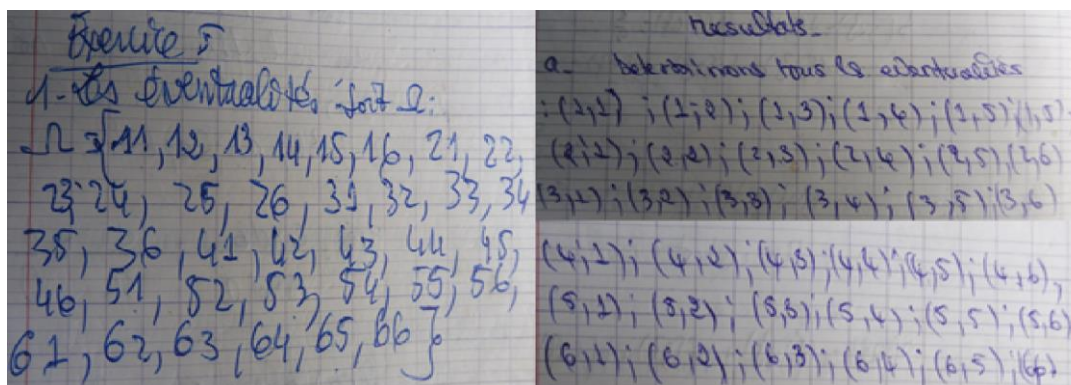 Exercice I
1- Les éventualités soit Ω:
Ω = {11, 12, 13, 14, 15, 16, 21, 22,
23, 24, 25, 26, 31, 32, 33, 34
35, 36, 41, 42, 43, 44, 45,
46, 51, 52, 53, 54, 55, 56,
61, 62, 63, 64, 65, 66}
résultats_
a_ Déterminons tous les éventualités
: (1,1) ; (1,2) ; (1,3) ; (1,4) ; (1,5) ; (1,5)
(2,1) ; (2,2) ; (2,3) ; (2,4) ; (2,5) (2,6)
(3,1) ; (3,2) ; (3,3) ; (3,4) ; (3,5) ; (3,6)
(4,1) ; (4,2) ; (4,3) ; (4,4) ; (4,5) ; (4,6),
(5,1) ; (5,2) ; (5,3) ; (5,4) ; (5,5) ; (5,6)
(6,1) ; (6,2) ; (6,3) ; (6,4) ; (6,5) ;